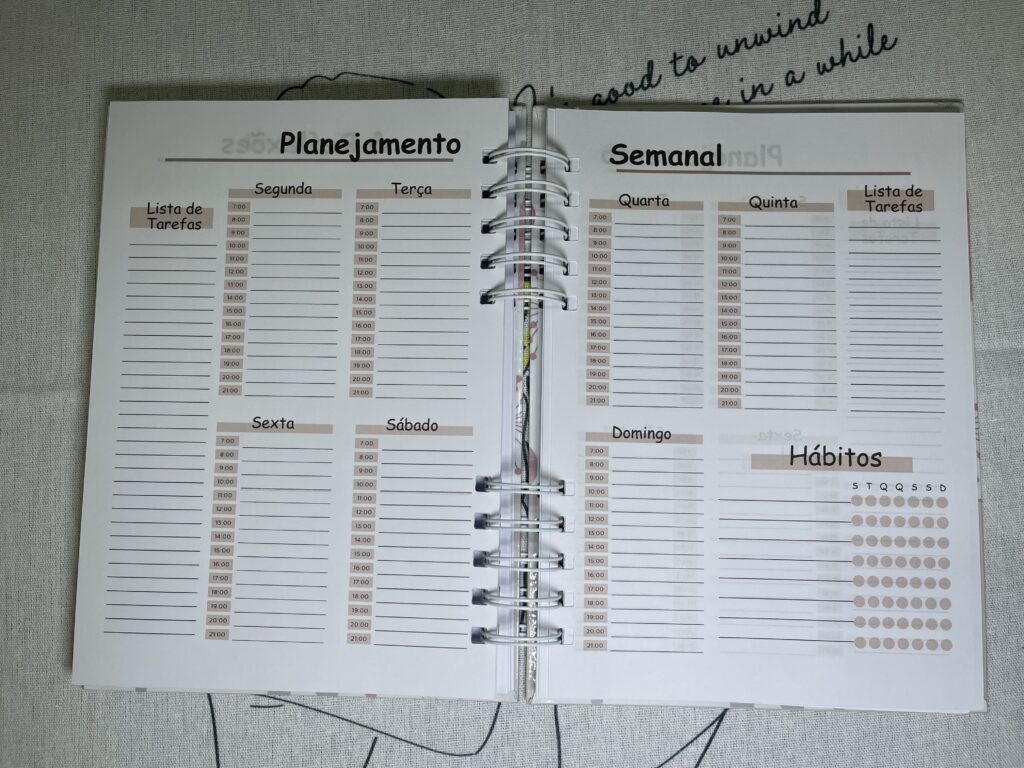 good to unwind
in a while
Planejamento
Lista de
Tarefas
Segunda
7:00
8:00
9:00
10:00
11:00
12:00
13:00
14:00
15:00
16:00
17:00
18:00
19:00
20:00
21:00
Terça
7:00
8:00
9:00
10:00
11:00
12:00
13:00
14:00
15:00
16:00
17:00
18:00
19:00
20:00
21:00
Sexta
7:00
8:00
9:00
10:00
11:00
12:00
13:00
14:00
15:00
16:00
17:00
18:00
19:00
20:00
21:00
Sábado
7:00
8:00
9:00
10:00
11:00
12:00
13:00
14:00
15:00
16:00
17:00
18:00
19:00
20:00
21:00
Semanal
Quarta
7:00
8:00
9:00
10:00
11:00
12:00
13:00
14:00
15:00
16:00
17:00
18:00
19:00
20:00
21:00
Quinta
7:00
8:00
9:00
10:00
11:00
12:00
13:00
14:00
15:00
16:00
17:00
18:00
19:00
20:00
21:00
Lista de
Tarefas
Domingo
7:00
8:00
9:00
10:00
11:00
12:00
13:00
14:00
15:00
16:00
17:00
18:00
19:00
20:00
21:00
Hábitos
S T Q Q S S D